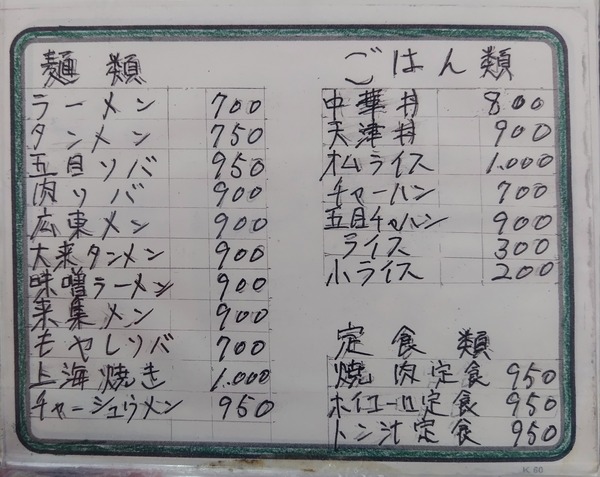 麺類
ラーメン 700
タンメン 750
五目ソバ 950
肉ソバ 900
広東メン 900
大来タンメン 900
味噌ラーメン 900
来集メン 900
もやしソバ 700
上海焼き 1.000
チャーシュウメン 950
ごはん類
中華丼 800
天津丼 900
オムライス 1.000
チャーハン 700
五目チャハン 900
ライス 300
小ライス 200
定食類
焼肉定食 950
ホイコーロ定食 950
トン汁定食 950
K 60